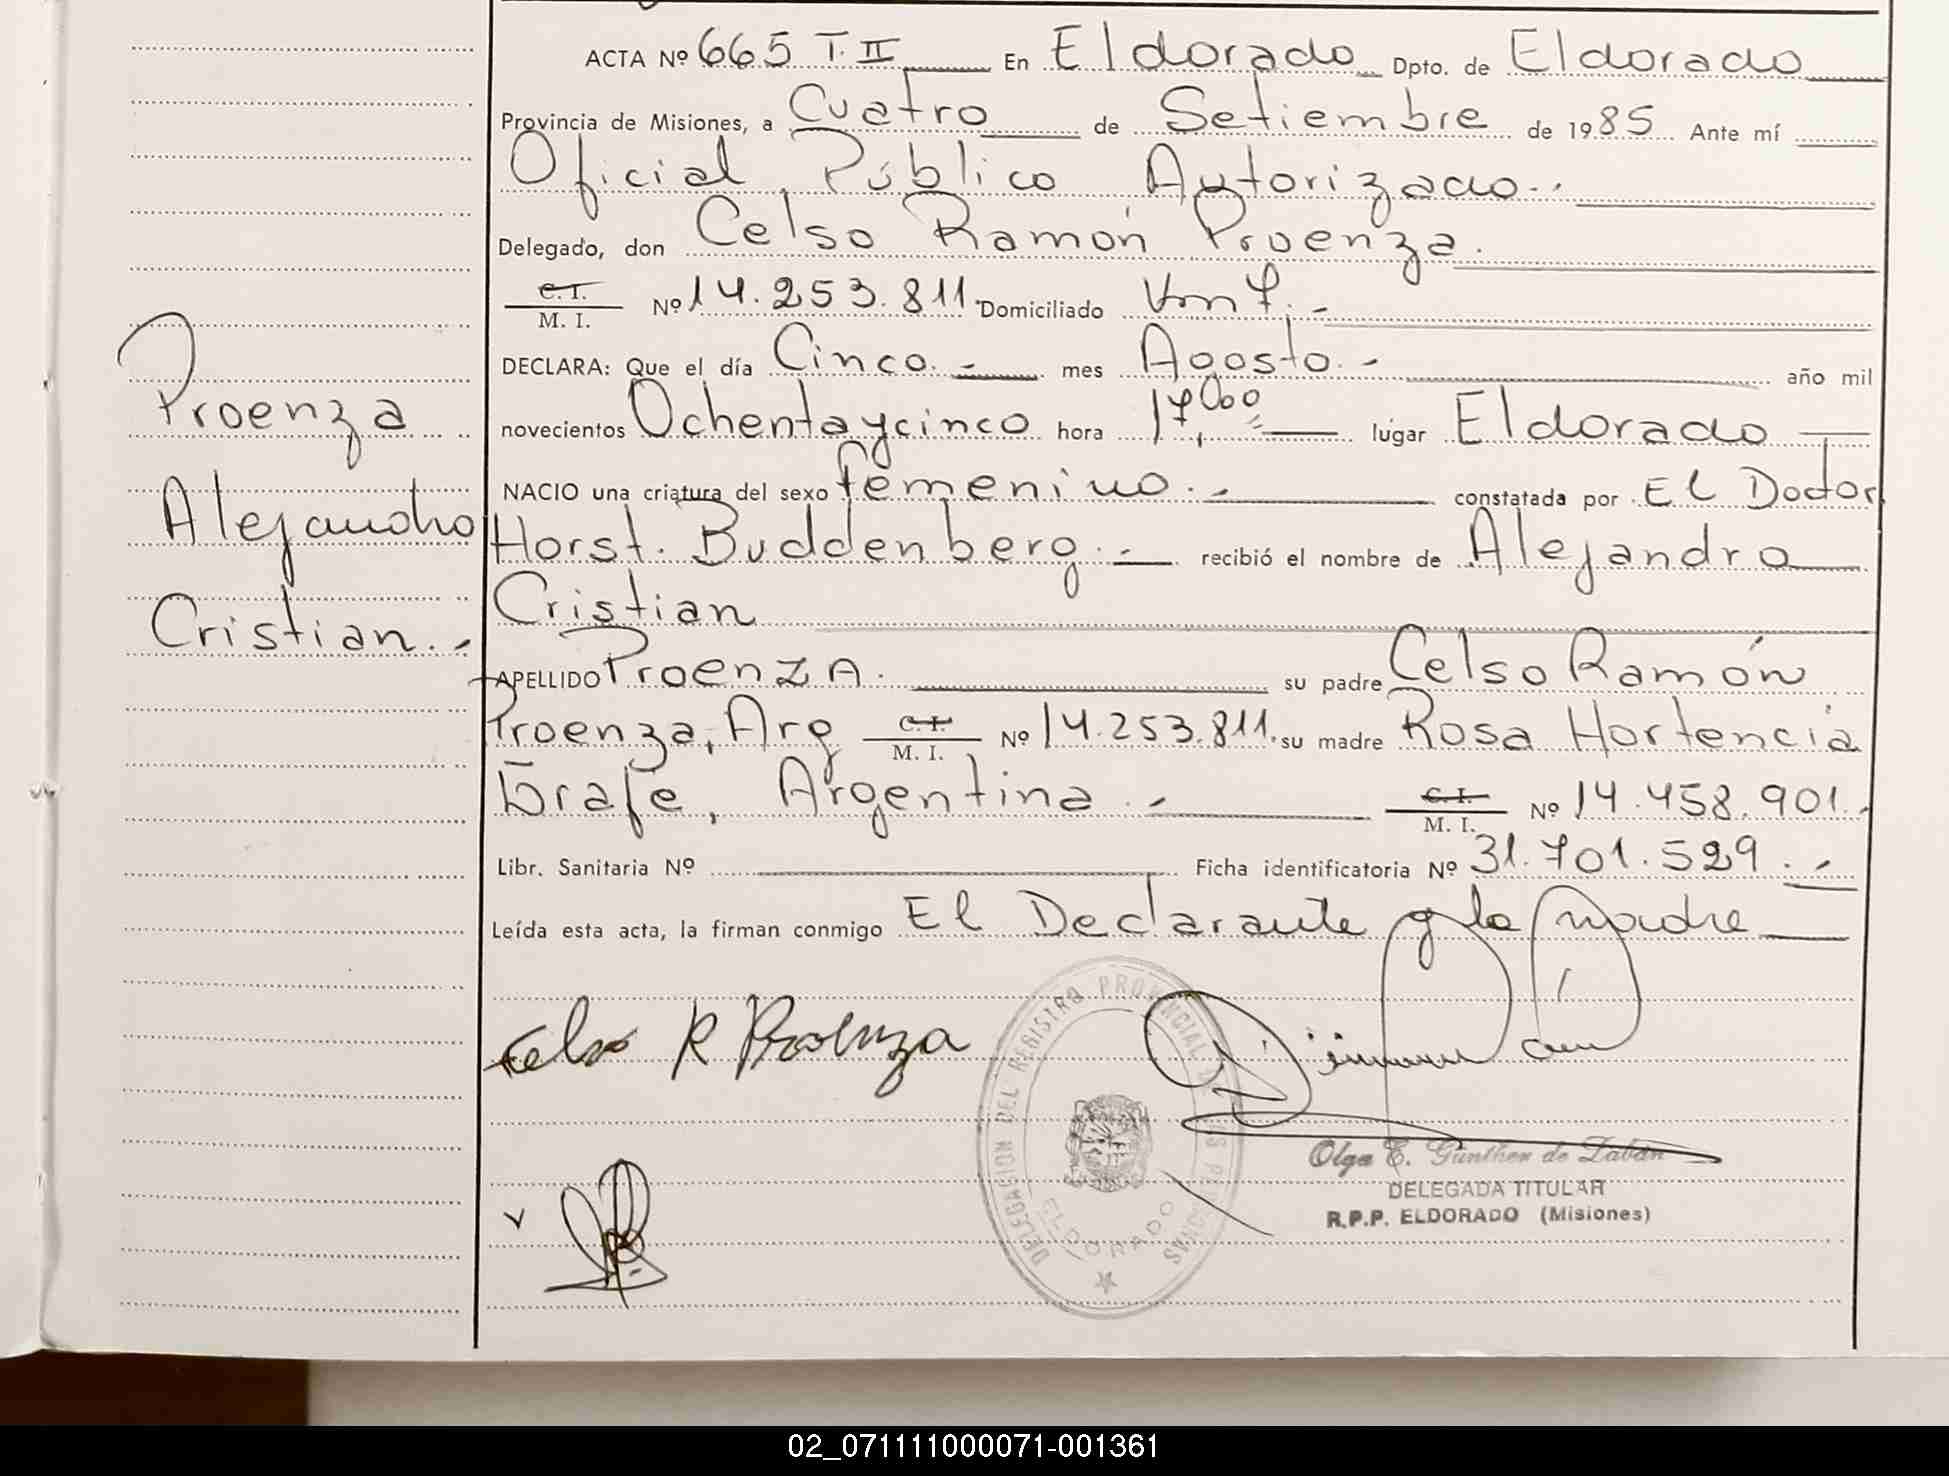 ACTA Nº 665 T. II En Eldorado Dpto. de Eldorado
Provincia de Misiones, a Cuatro de Setiembre de 1985 Ante mí
Oficial Público Autorizado.
Delegado, don Celso Ramón Proenza.
C. I. M. I. Nº 14.253.811. Domiciliado
DECLARA: Que el día Cinco. mes Agosto. año mil
novecientos Ochentaycinco hora 17,00 lugar Eldorado
NACIO una criatura del sexo femenino. constatada por El Doctor
Horst. Buddenberg. recibió el nombre de Alejandra
Cristian
APELLIDO Proenza. su padre Celso Ramón
Proenza, Arg C. I. M. I. Nº 14.253.811. su madre Rosa Hortencia
Grafe, Argentina. C. I. M. I. Nº 14.458.901.
Libr. Sanitaria Nº Ficha identificatoria Nº 31.701.529.
Leída esta acta, la firman conmigo El Declarante y la Madre
Proenza
Alejandro
Cristian.
Celso R Proenza
DELEGACION DEL REGISTRO PROVINCIAL DE LAS PERSONAS
ELDORADO
Olga E. Günther de Zabán
DELEGADA TITULAR
R.P.P. ELDORADO (Misiones)
02_071111000071-001361